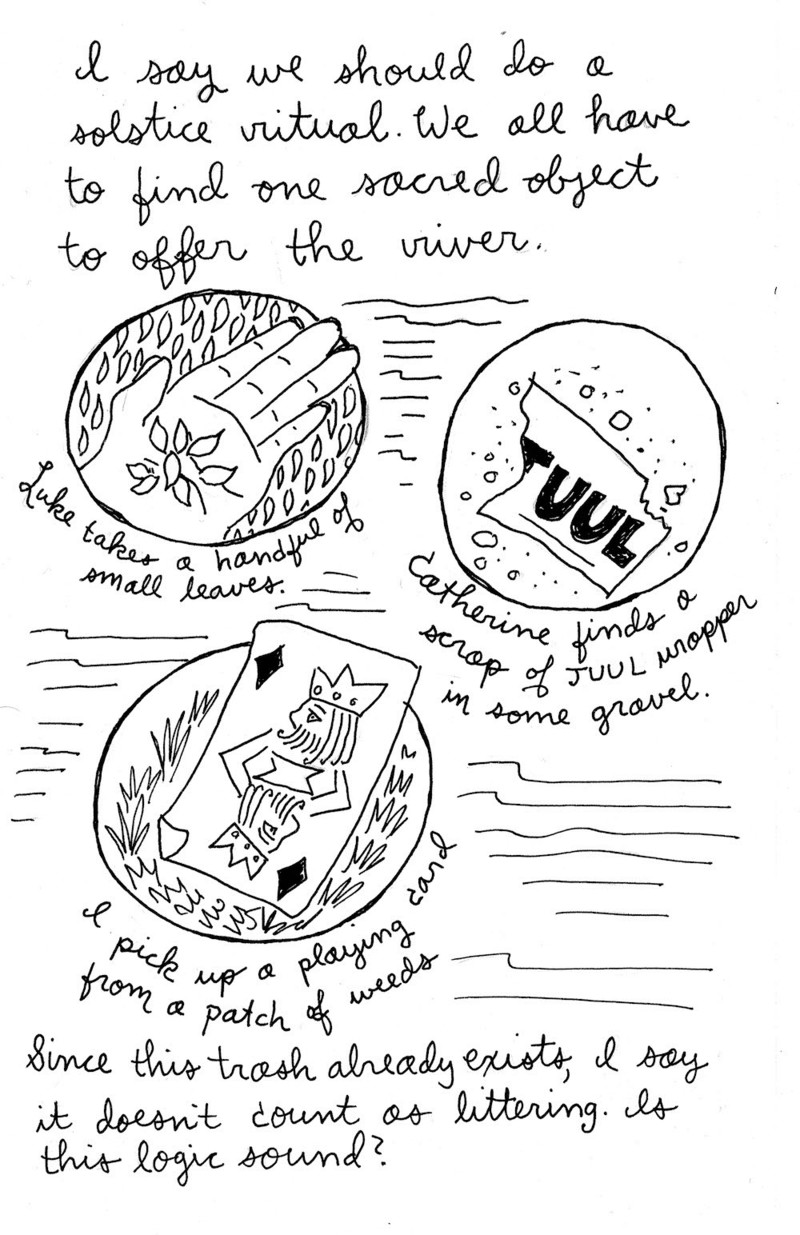 I say we should do a
solstice ritual. We all have
to find one sacred object
to offer the river.
Luke takes a handful of
small leaves.
JUUL
Catherine finds a
scrap of JUUL wrapper
in some gravel.
I pick up a playing card
from a patch of weeds
Since this trash already exists, I say
it doesn't count as littering. Is
this logic sound?